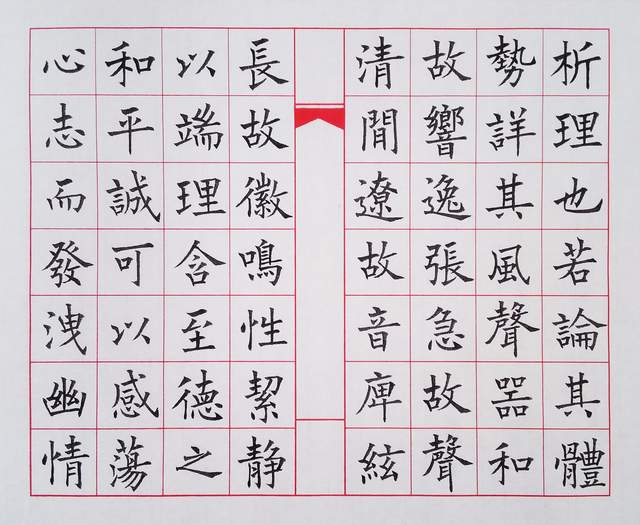 析理也若論其體
勢詳其風聲噐和
故響逸張急故聲
清閒遼故音庳絃
長故徽鳴性絜静
以端理含至德之
和平誠可以感蕩
心志而發洩幽情